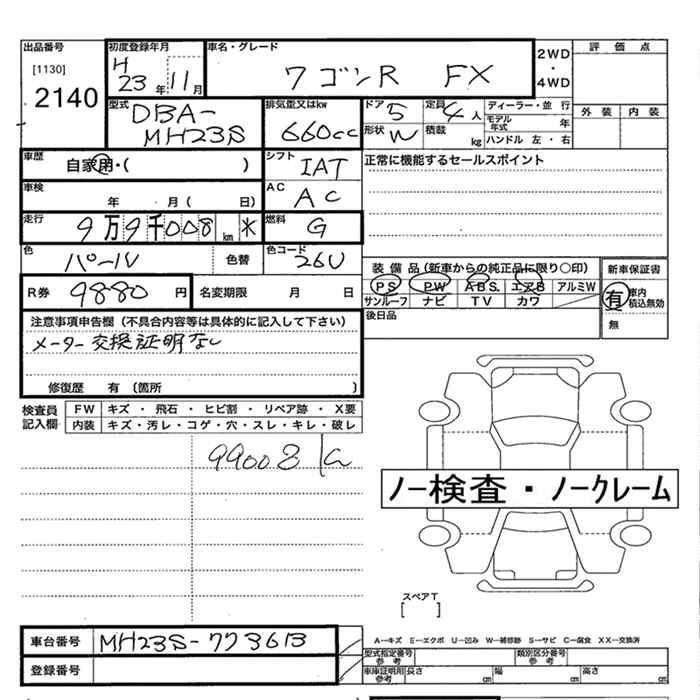 出品番号 初度登録年月 車名・グレード 2WD・4WD 評価点
[1130] H 23年 11月 ワゴンR FX
2140 外装 内装
型式 DBA-MH23S 排気量又はkw 660cc ドア 5 定員 4人 ディーラー・並行
モデル年式 年
形状 W 積載 kg ハンドル 左・右
車歴 自家用・( ) シフト IAT 正常に機能するセールスポイント
車検 年 月( 日) AC AC
走行 9万9千008km * 燃料 G
色 パール 色替 色コード 26U 装備品(新車からの純正品に限り○印) 新車保証書
R券 9880円 名変期限 月 日 PS PW ABS エアB アルミW 有 車内積込無効
サンルーフ ナビ TV カワ
注意事項申告欄(不具合内容等は具体的に記入して下さい) 後日品 無
メーター交換証明なし
修復歴 有 (箇所 )
検査員記入欄 FW キズ・飛石・ヒビ割・リペア跡・X要
内装 キズ・汚レ・コゲ・穴・スレ・キレ・破レ
99008
ノー検査・ノークレーム
スペアT
[ ]
車台番号 MH23S-773613 A-キズ E-エクボ U-凹み W-補修跡 S-サビ C-腐食 XX-交換済
型式指定番号参考 類別区分番号参考
登録番号 車庫証明用参考 長さ cm 幅 cm 高さ cm